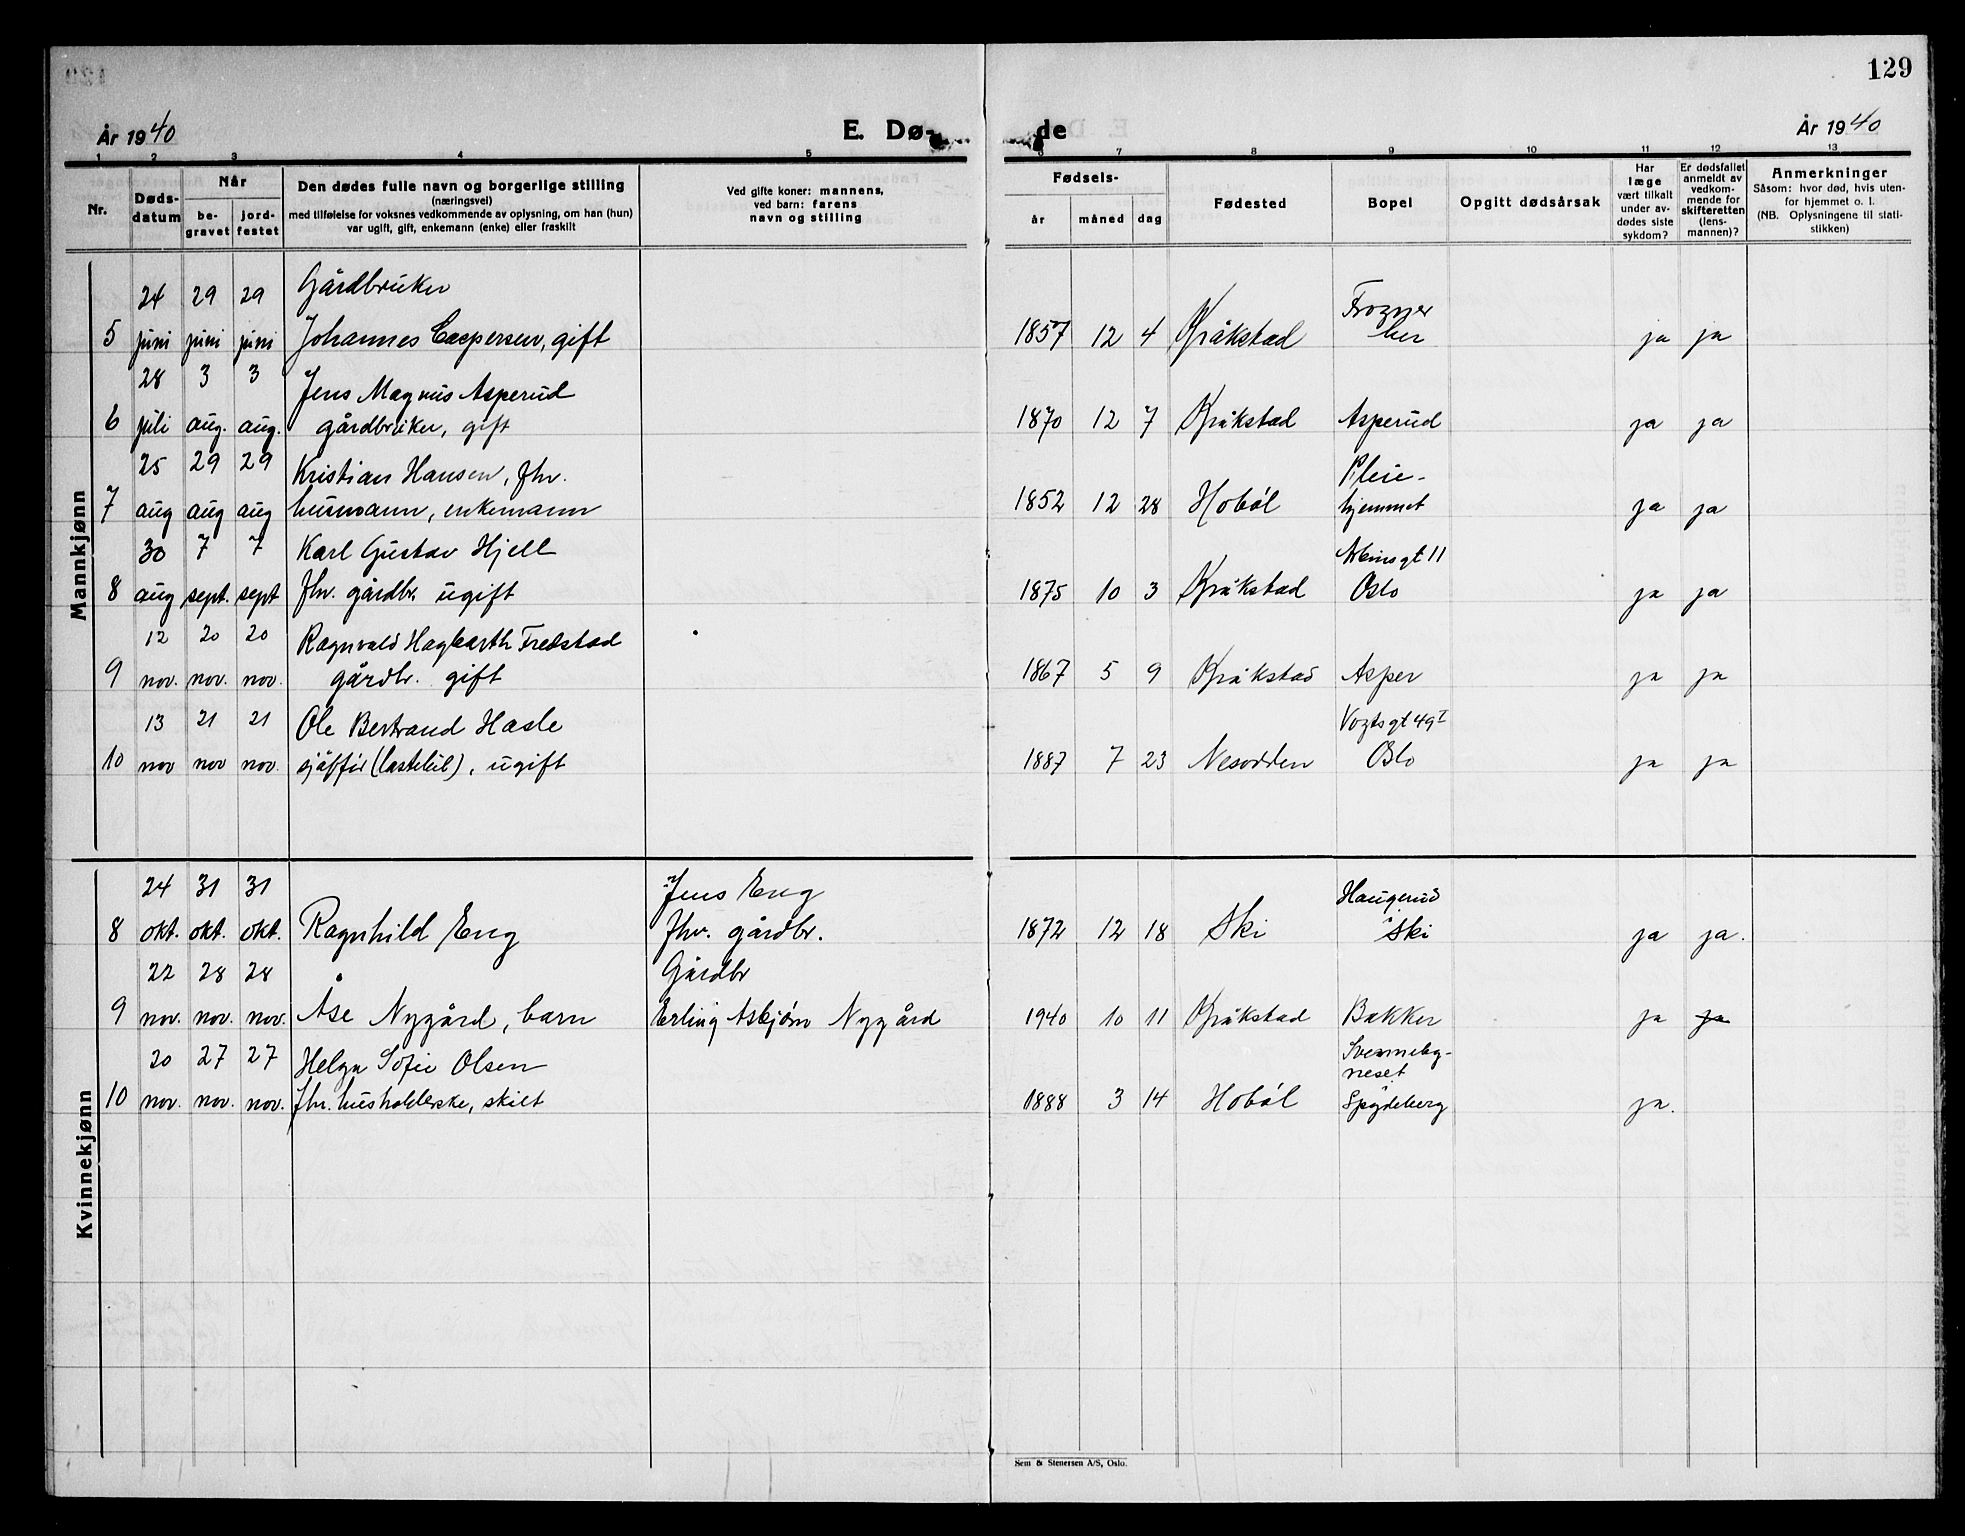 129
År 1940
E. Dø-
de
År 1940
1 2 3 4 5 6 7 8 9 10 11 12 13
Nr.
Døds-
datum
Når
be-
gravet
jord-
festet
Den dødes fulle navn og borgerlige stilling
(næringsvei)
med tilføielse for voksnes vedkommende av oplysning, om han (hun)
var ugift, gift, enkemann (enke) eller fraskilt
Ved gifte koner: mannens,
ved barn: farens
navn og stilling
Fødsels-
år måned dag
Fødested
Bopel
Opgitt dødsårsak
Har
læge
vært tilkalt
under av-
dødes siste
sykdom?
Er dødsfallet
anmeldt av
vedkom-
mende for
skifteretten
(lens-
mannen)?
Anmerkninger
Såsom: hvor død, hvis uten-
for hjemmet o. l.
(NB. Oplysningene til stati-
stikken)
Mannkjønn
24 29 29 Gårdbruker
5 juni juni juni Johannes Caspersen, gift 1857 12 4 Kråkstad ja ja
28 3 3 Jens Magnus Asperud
6 juli aug. aug. gårdbruker, gift 1870 12 7 Kråkstad Asperud ja ja
25 29 29 Kristian Hansen, fhv. Pleie-
7 aug aug aug husmann, enkemann 1852 12 28 Hobøl hjemmet ja ja
30 7 7 Karl Gustav Hjell Arbinsgt 11
8 aug sept. sept fhv. gårdbr. ugift 1875 10 3 Kråkstad Oslo ja ja
12 20 20 Ragnvald Hagbarth Fredstad
9 nov. nov. nov. gårdbr. gift 1867 5 9 Kråkstad Asper ja ja
13 21 21 Ole Bertrand Hasle Vogtsgt 49 I
10 nov nov nov. sjåffør (lastebil), ugift 1887 7 23 Nesodden Oslo ja ja
Kvinnekjønn
24 31 31 Jens Eng Haugerud
8 okt. okt. okt. Ragnhild Eng fhv. gårdbr. 1872 12 18 Ski i Ski ja ja.
22 28 28 Gårdbr
9 nov. nov. nov. Åse Nygård, barn Erling Asbjørn Nygård 1940 10 11 Kråkstad Bakker ja ja
20 27 27 Helga Sofie Olsen
neset
10 nov. nov. nov. fhv. husholderske, skilt 1888 3 14 Hobøl Spydeberg ja.
Sem & Stenersen A/S, Oslo.